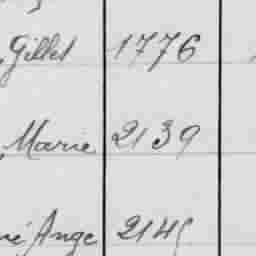 Gillet 1776
Marie 2139
né Ange 214